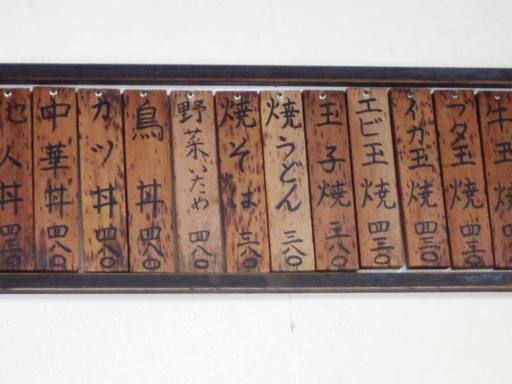 牛玉焼
ブタ玉焼 四三〇
イカ玉焼 四三〇
エビ玉焼 四三〇
玉子焼 三八〇
焼うどん 三八〇
焼そば 三八〇
野菜いため 四八〇
鳥丼 四八〇
カツ丼 四八〇
中華丼 四八〇
他人丼 四三〇